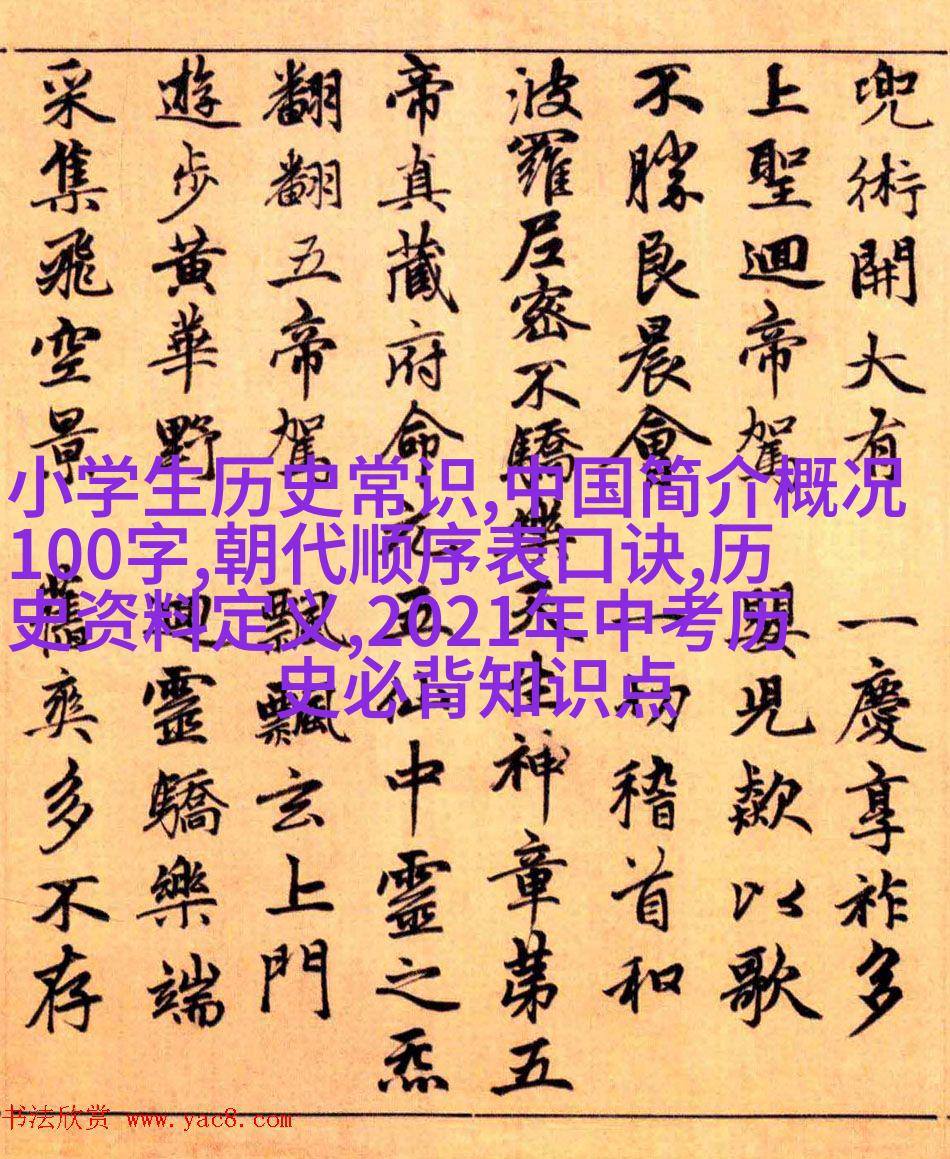 兜術開大有 一慶享祚多
上聖迴帝駕 兒歎以歌
不勝良晨會 一切稽首和
波羅尼密不驕樂天生神章第五
帝真藏府命元五仙中靈之炁
翻翻五帝駕 飄飄玄上門
遊步黃華野 迴靈驕樂端
采集飛空景 舊爽多不存
小学生历史常识,中国简介概况
100字,朝代顺序表口诀,历
史资料定义,2021年中考历
史必背知识点
书法欣赏 www.yac8.com